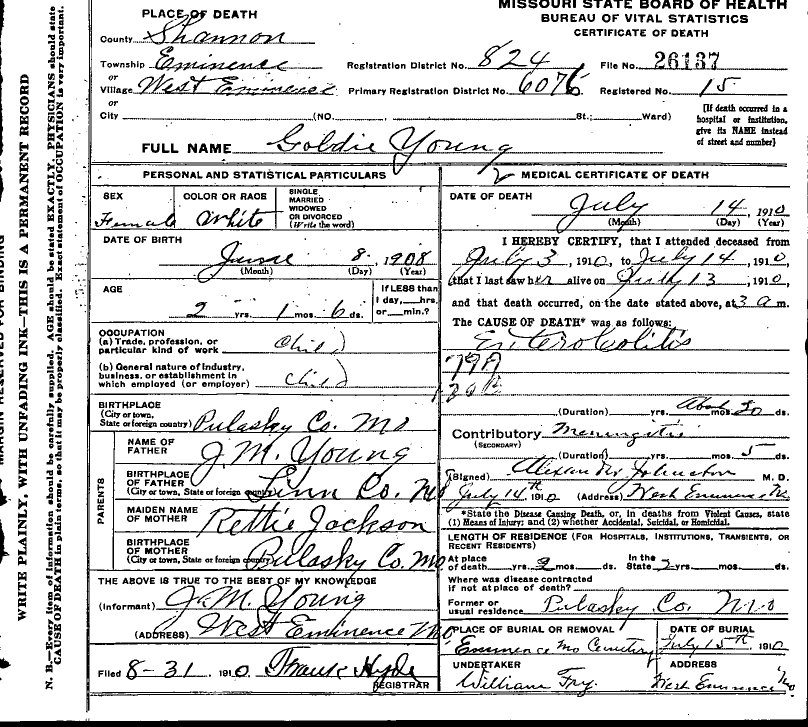 MISSOURI STATE BOARD OF HEALTH
BUREAU OF VITAL STATISTICS
CERTIFICATE OF DEATH
PLACE OF DEATH
County Shannon
Township Eminence
or
Village West Eminence
or
City (NO. St.; Ward)
Registration District No. 824
File No. 26137
Primary Registration District No. 6076
Registered No. 15
[If death occurred in a
hospital or institution,
give its NAME instead
of street and number]
FULL NAME Goldie Young
PERSONAL AND STATISTICAL PARTICULARS
SEX Female
COLOR OR RACE White
SINGLE
MARRIED
WIDOWED
OR DIVORCED
(Write the word)
DATE OF BIRTH
June 8, 1908
(Month) (Day) (Year)
AGE
2 yrs. 1 mos. 6 ds.
If LESS than
1 day, hrs.
or min.?
OCCUPATION
(a) Trade, profession, or
particular kind of work Child
(b) General nature of industry,
business, or establishment in
which employed (or employer) Child
BIRTHPLACE
(City or town,
State or foreign country) Pulasky Co. Mo
PARENTS
NAME OF
FATHER J.M. Young
BIRTHPLACE
OF FATHER
(City or town, State or foreign country) Linn Co. Mo
MAIDEN NAME
OF MOTHER Rettie Jackson
BIRTHPLACE
OF MOTHER
(City or town, State or foreign country) Pulasky Co. Mo
THE ABOVE IS TRUE TO THE BEST OF MY KNOWLEDGE
(Informant) J.M. Young
(ADDRESS) West Eminence Mo
Filed 8-31 1910. Frank Hyde
REGISTRAR
MEDICAL CERTIFICATE OF DEATH
DATE OF DEATH
July 14, 1910
(Month) (Day) (Year)
I HEREBY CERTIFY, that I attended deceased from
July 3, 1910, to July 14, 1910,
that I last saw her alive on July 13, 1910,
and that death occurred, on the date stated above, at 3 a m.
The CAUSE OF DEATH* was as follows:
Enterocolitis
79A
(Duration) yrs. mos. About 30 ds.
Contributory Meningitis
(SECONDARY)
(Duration) yrs. mos. 5 ds.
(Signed) Alexander Johnston M. D.
July 14th 1910 (Address) West Eminence Mo
*State the Disease Causing Death, or, in deaths from Violent Causes, state
(1) Means of Injury; and (2) whether Accidental, Suicidal, or Homicidal.
LENGTH OF RESIDENCE (FOR HOSPITALS, INSTITUTIONS, TRANSIENTS, OR
RECENT RESIDENTS)
At place
of death yrs. 2 mos. ds.
In the
State 2 yrs. mos. ds.
Where was disease contracted
if not at place of death?
Former or
usual residence Pulasky Co. Mo
PLACE OF BURIAL OR REMOVAL
Eminence Mo Cemetery
DATE OF BURIAL
July 15th 1910
UNDERTAKER
William Fry.
ADDRESS
West Eminence Mo
MARGIN RESERVED FOR BINDING
WRITE PLAINLY, WITH UNFADING INK—THIS IS A PERMANENT RECORD
N. B.—Every item of information should be carefully supplied. AGE should be stated EXACTLY. PHYSICIANS should state
CAUSE OF DEATH in plain terms, so that it may be properly classified. Exact statement of OCCUPATION is very important.